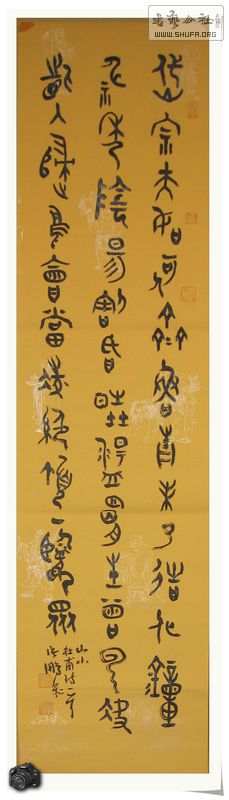 書法公社
WWW.SHUFA.ORG
岱宗夫如何齊魯青未了造化鐘
神秀陰昜割昏曉盪胸生曾云決
眥入歸鳥會當凌絕頂一覽眾
山小
杜甫詩一首